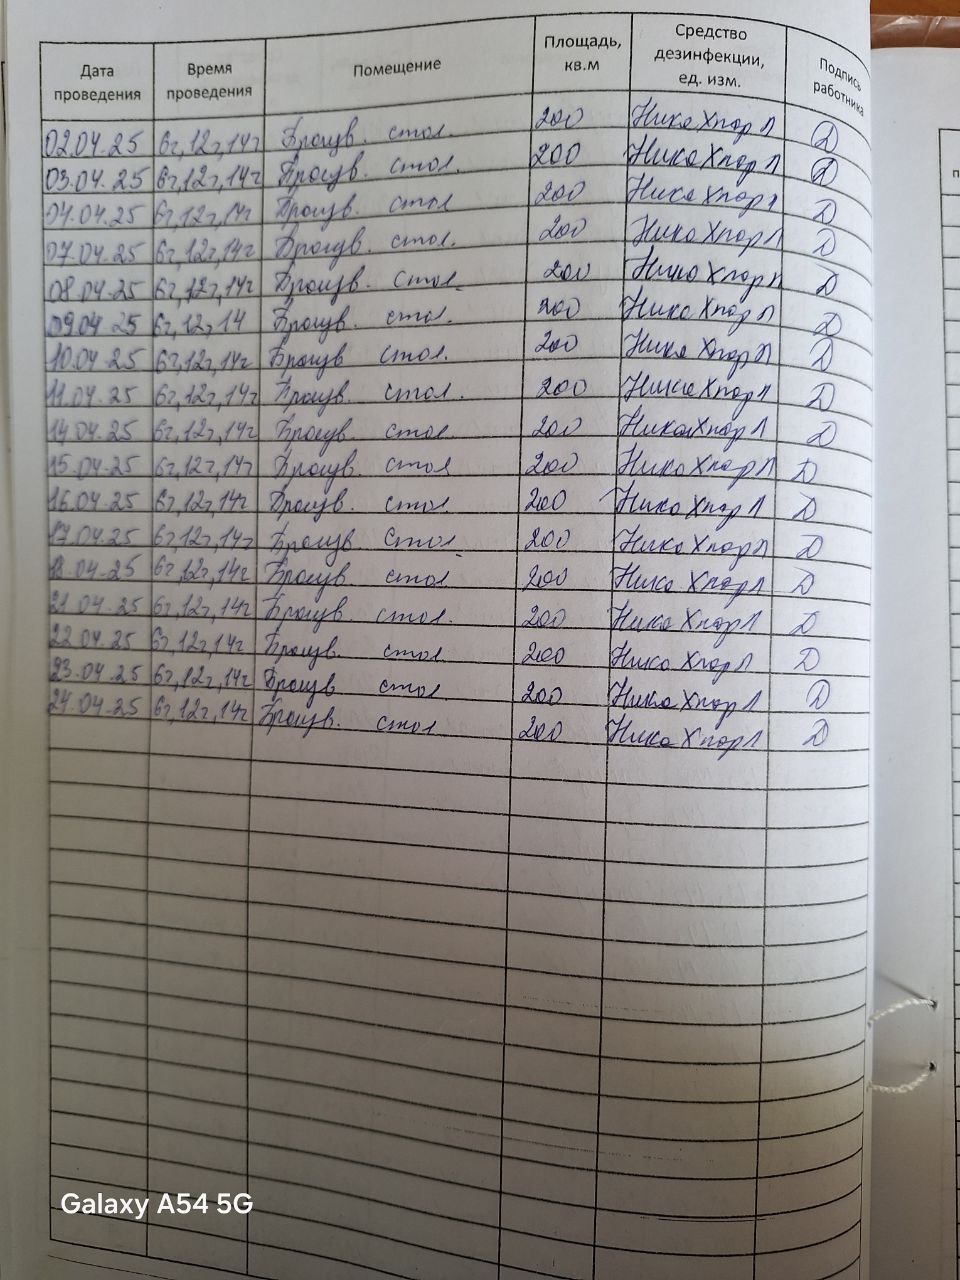 Дата проведения | Время проведения | Помещение | Площадь, кв.м | Средство дезинфекции, ед. изм. | Подпись работника
02.04.25 | 6ч,12ч,14ч | Произв. стол. | 200 | Ника Хлор П | Д
03.04.25 | 6ч,12ч,14ч | Произв. стол. | 200 | Ника Хлор П | Д
04.04.25 | 6ч,12ч,14ч | Произв. стол | 200 | Ника Хлор П | Д
07.04.25 | 6ч,12ч,14ч | Произв. стол. | 200 | Ника Хлор П | Д
08.04.25 | 6ч,12ч,14ч | Произв. стол. | 200 | Ника Хлор П | Д
09.04.25 | 6ч,12ч,14 | Произв. стол. | 200 | Ника Хлор П | Д
10.04.25 | 6ч,12ч,14ч | Произв стол. | 200 | Ника Хлор П | Д
11.04.25 | 6ч,12ч,14ч | Произв. стол. | 200 | Ника Хлор П | Д
14.04.25 | 6ч,12ч,14ч | Произв. стол. | 200 | Ника Хлор П | Д
15.04.25 | 6ч,12ч,14ч | Произв. стол | 200 | Ника Хлор П | Д
16.04.25 | 6ч,12ч,14ч | Произв. стол. | 200 | Ника Хлор П | Д
17.04.25 | 6ч,12ч,14ч | Произв. стол. | 200 | Ника Хлор П | Д
18.04.25 | 6ч,12ч,14ч | Произв. стол | 200 | Ника Хлор П | Д
21.04.25 | 6ч,12ч,14ч | Произв. стол. | 200 | Ника Хлор П | Д
22.04.25 | 6ч,12ч,14ч | Произв. стол | 200 | Ника Хлор П | Д
23.04.25 | 6ч,12ч,14ч | Произв стол | 200 | Ника Хлор П | Д
24.04.25 | 6ч,12ч,14ч | Произв. стол | 200 | Ника Хлор П | Д
Galaxy A54 5G